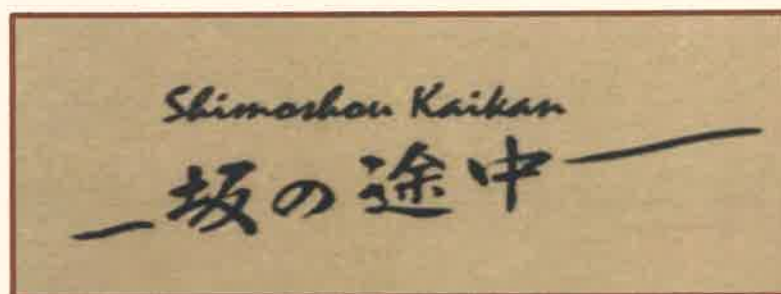 Shimoshou Kaikan
坂の途中